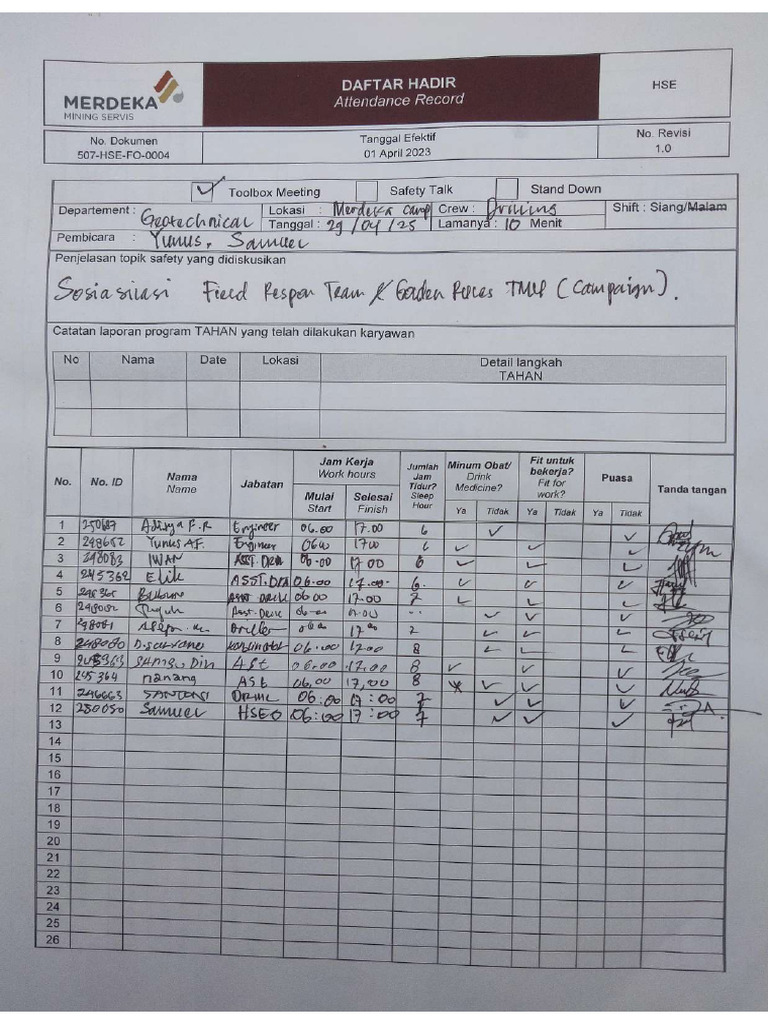 MERDEKA
MINING SERVIS
DAFTAR HADIR
Attendance Record
HSE
No. Dokumen
507-HSE-FO-0004
Tanggal Efektif
01 April 2023
No. Revisi
1.0
Toolbox Meeting Safety Talk Stand Down
Departement : Geotechnical Lokasi : Merdeka Camp Crew : Drilling Shift : Siang/Malam
Tanggal : 29/04/25 Lamanya : 10 Menit
Pembicara : Yunus, Samuel
Penjelasan topik safety yang didiskusikan
Sosiasiliasi Field Respon Team & Golden Rules (Campaign).
Catatan laporan program TAHAN yang telah dilakukan karyawan
No Nama Date Lokasi Detail langkah
TAHAN
No. No. ID Nama
Name Jabatan Jam Kerja
Work hours Jumlah
Jam
Tidur?
Sleep
Hour Minum Obat/
Drink
Medicine? Fit untuk
bekerja?
Fit for
work? Puasa Tanda tangan
Mulai
Start Selesai
Finish Ya Tidak Ya Tidak Ya Tidak
1 Aditya F.R Engineer 06.00 17.00 6
2 248652 Yunus AF. Engineer 0600 1700 6
3 248083 IWAN ASST.DRILL 06.00 17 00 6
4 245362 Elik ASST.DRILL 06.00 17.00 6.
5 ASST. DRILL 06 00 17.00 7
6 248082 Teguh Asst.Drill
7 248081 Driller 17 00
8 248080 06.00 17.00 8
9 245363 Samsu Din ASt 06.00 17.00 8
10 245364 nanang ASt 06.00 17,00 8
11 246663 SANTOSI 06:00 17:00 7
12 280050 Samuel HSEO 06:00 17:00 7
13
14
15
16
17
18
19
20
21
22
23
24
25
26